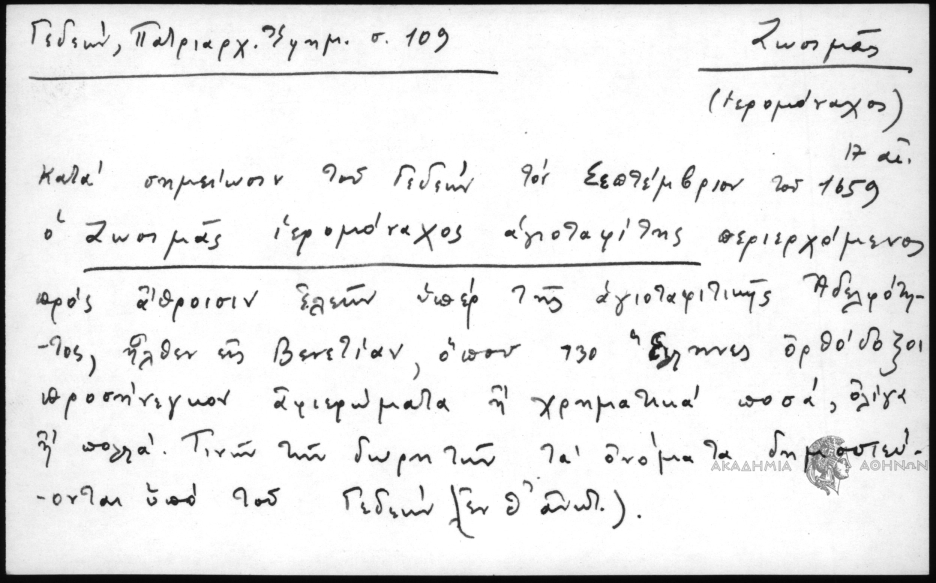 Γεδεών, Πατριαρχ. Ἐφημ. σ. 109
Ζωσιμᾶς
(ἱερομόναχος)
17 αἰ.
Κατά σημείωσιν τοῦ Γεδεών τόν Σεπτέμβριον τοῦ 1659
ὁ Ζωσιμᾶς ἱερομόναχος ἁγιοταφίτης περιερχόμενος
πρός ἄθροισιν ἐλεῶν ὑπέρ τῆς ἁγιοταφιτικῆς Ἀδελφότη-
-τος, ἦλθεν εἰς Βενετίαν, ὅπου 730 Ἕλληνες ὀρθόδοξοι
προσήνεγκον ἀφιερώματα ἤ χρηματικά ποσά, ὀλίγα
ἤ πολλά. Τινῶν τῶν δωρητῶν τά ὀνόματα δημοσιεύ-
-ονται ὑπό τοῦ Γεδεών (ἔνθ' ἀνωτ.).
ΑΚΑΔΗΜΙΑ ΑΘΗΝΩΝ